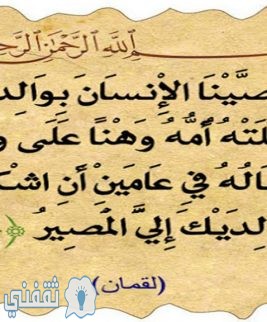 اللَّهِ الرَّحْمَٰنِ الرَّحِ
صَّيْنَا الْإِنسَانَ بِوَالِدِ
لَتْهُ أُمُّهُ وَهْنًا عَلَى وَ
الُهُ فِي عَامَيْنِ أَنِ اشْكُ
لِدَيْكَ إِلَيَّ الْمَصِيرُ
(لقمان)
ثقفني